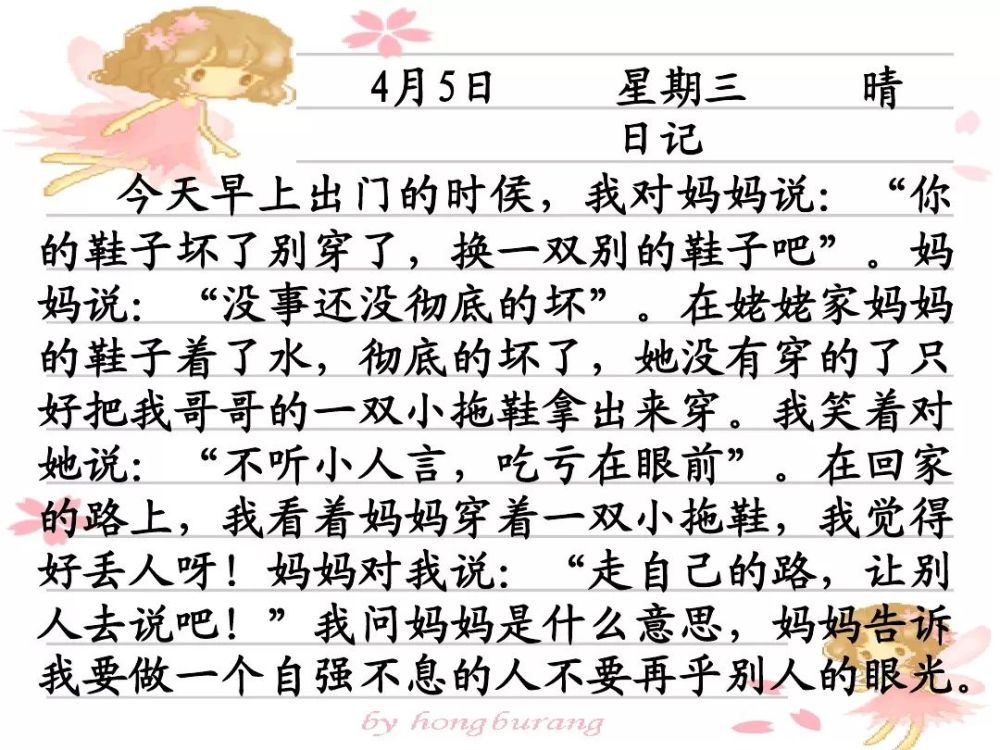 4月5日 星期三 晴
日记
今天早上出门的时侯，我对妈妈说：“你
的鞋子坏了别穿了，换一双别的鞋子吧”。妈
妈说：“没事还没彻底的坏”。在姥姥家妈妈
的鞋子着了水，彻底的坏了，她没有穿的了只
好把我哥哥的一双小拖鞋拿出来穿。我笑着对
她说：“不听小人言，吃亏在眼前”。在回家
的路上，我看着妈妈穿着一双小拖鞋，我觉得
好丢人呀！妈妈对我说：“走自己的路，让别
人去说吧！”我问妈妈是什么意思，妈妈告诉
我要做一个自强不息的人不要再乎别人的眼光。
by hongburang